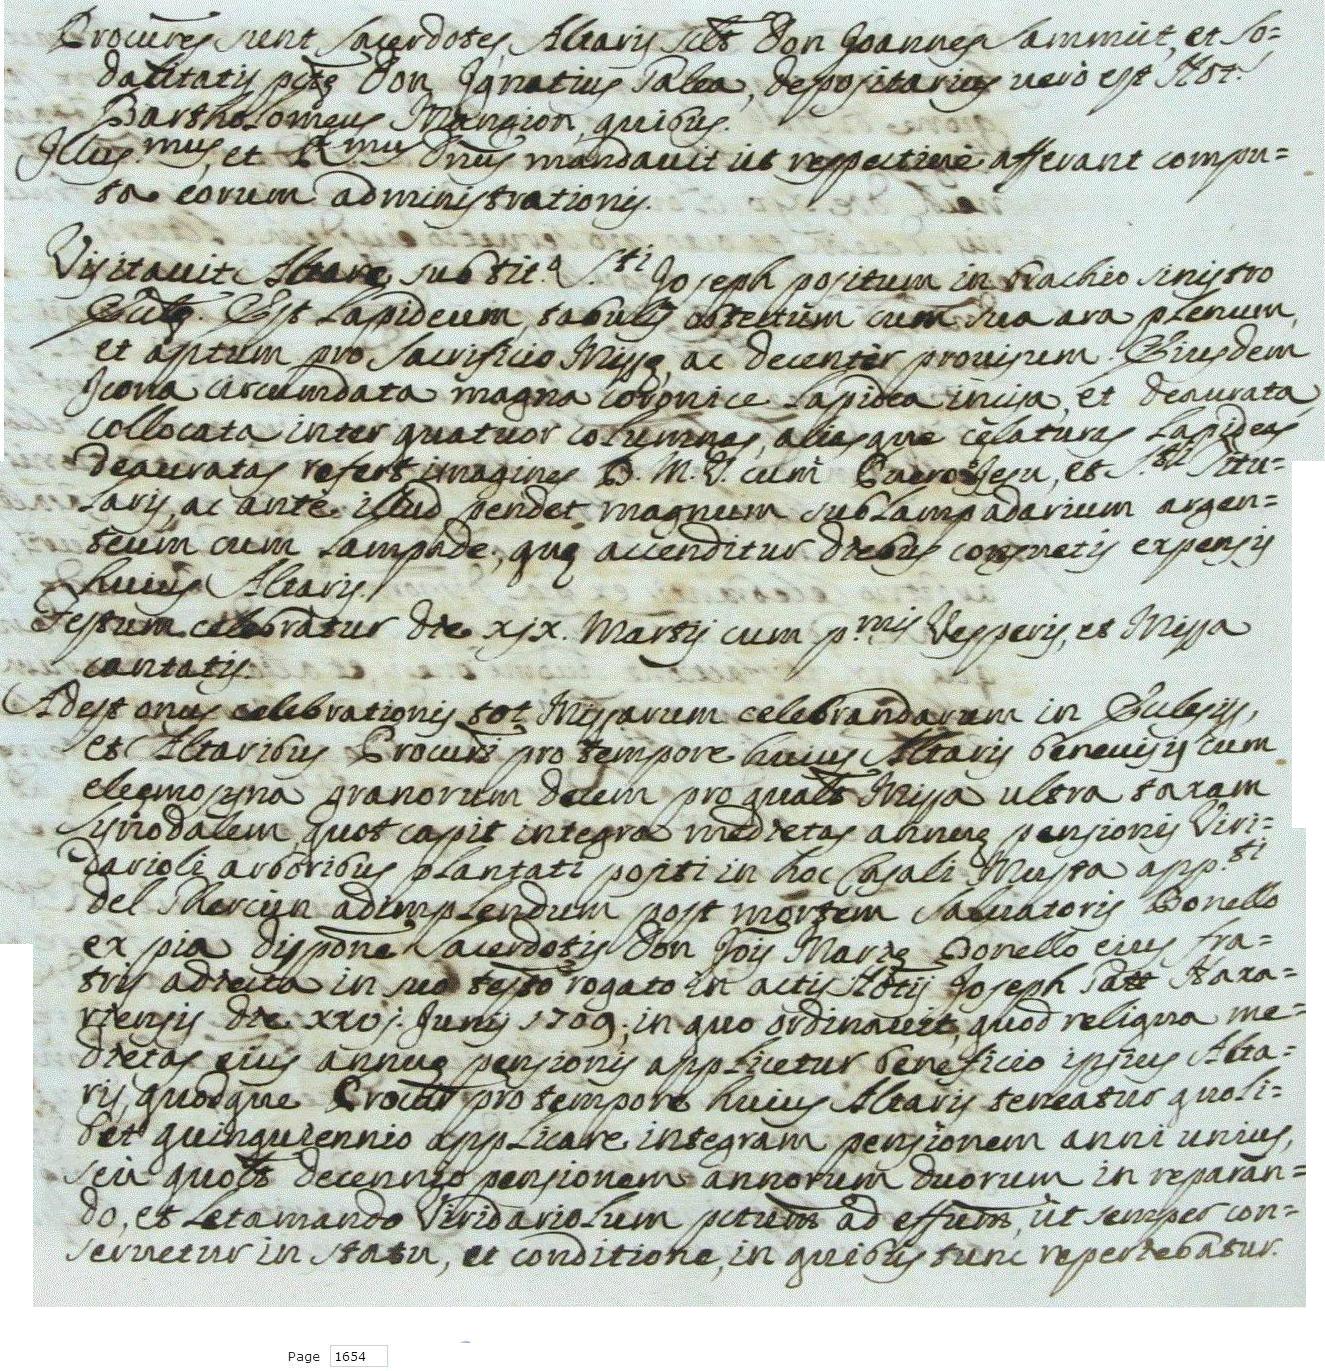 Procures sunt Sacerdotes Altaris scilt Don Joannes Sammut, et So=
dalitatis pttę Don Ignatius Falca, depositarius vero est Not.
Bartholomeus Mangion, quibus.
Illus.mus, et R.mus Dnus mandavit ut respective afferant compu=
ta eorum administrationis.
Visitavit Altare sub tit.o S.ti Joseph positum in brachio sinistro
Ecclę. Est Lapideum, tabulis obtectum cum sua ara plenum,
et aptum pro Sacrificio Missę, ac decenter provisum. Eiusdem
Icona circumdata magna coronice Lapidea incisa, et deaurata,
collocata inter quatuor columnas, aliasque cęlaturas Lapideas
deauratas refert imagines B. M. V. cum Puero Jesu, et S.ti Titu=
laris, ac ante illud pendet magnum sublampadarium argen=
teum cum Lampade, quę accenditur diebus consuetis expensis
huius Altaris.
Festum celebratur die xjx. Martij cum p.mis Vesperis, et Missa
cantatis.
Adest onus celebrationis tot Missarum celebrandarum in Eclesijs,
et Altaribus Procuri pro tempore huius Altaris benevisis cum
eleemosyna granorum decem pro qualt Missa ultra taxam
synodalem, quot capit integra medietas annuę pensionis Viri=
darioli arboribus plantati positi in hoc Casali Musta app.ti
del Thercun adimplendum post mortem Salvatoris Bonello
ex pia dispone Sacerdotis Don Jois Marię Bonello eius fra=
tris adiecta in suo testo rogato in actis Notij Joseph Patt Naxa=
riensis die xxvj. Junij 1709; in quo ordinavit, quod reliqua me=
dietas eius annuę pensionis applicetur beneficio ipsius Alta=
ris, quodque Procur pro tempore huius Altaris teneatur quoli=
bet quinquiennio applicare integram pensionem anni unius,
seu quolt decennio pensionem annorum duorum in reparan=
do, et Letamando Viridariolum pttum ad effum, ut semper con=
servetur in statu, et conditione, in quibus tunc reperiebatur.
Page 1654